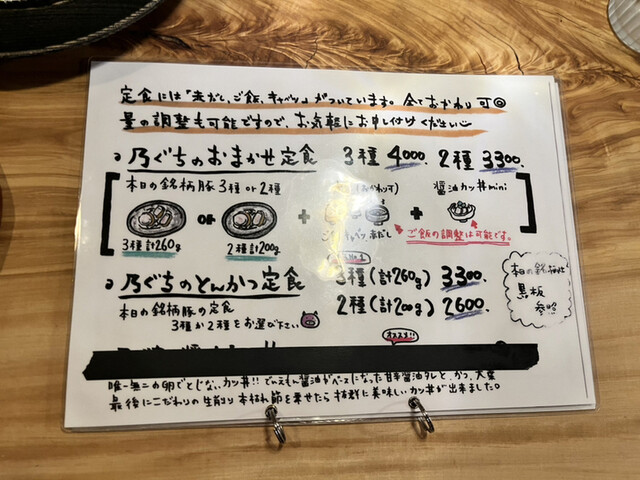 定食には「赤だし、ご飯、キャベツ」がついています。全ておかわり可◎
量の調整も可能ですので、お気軽にお申し付けください
乃ぐちのおまかせ定食 3種 4000. 2種 3300.
本日の銘柄豚3種 or 2種
醤油カツ丼mini
or + +
3種 計260g
2種 計200g
ご飯の調整は可能です。
乃ぐちのとんかつ定食 3種(計260g) 3300.
2種(計200g) 2600.
本日の銘柄豚の定食
3種か2種をお選び下さい
本日の銘柄は
黒板
参照
オススメ!!
唯一無二の卵でとじないカツ丼!! でいえもん醤油がベースになった甘辛醤油タレと、かつ、大葉
最後にこだわりの生削り本枯れ節を乗せたら抜群に美味しいカツ丼が出来ました。